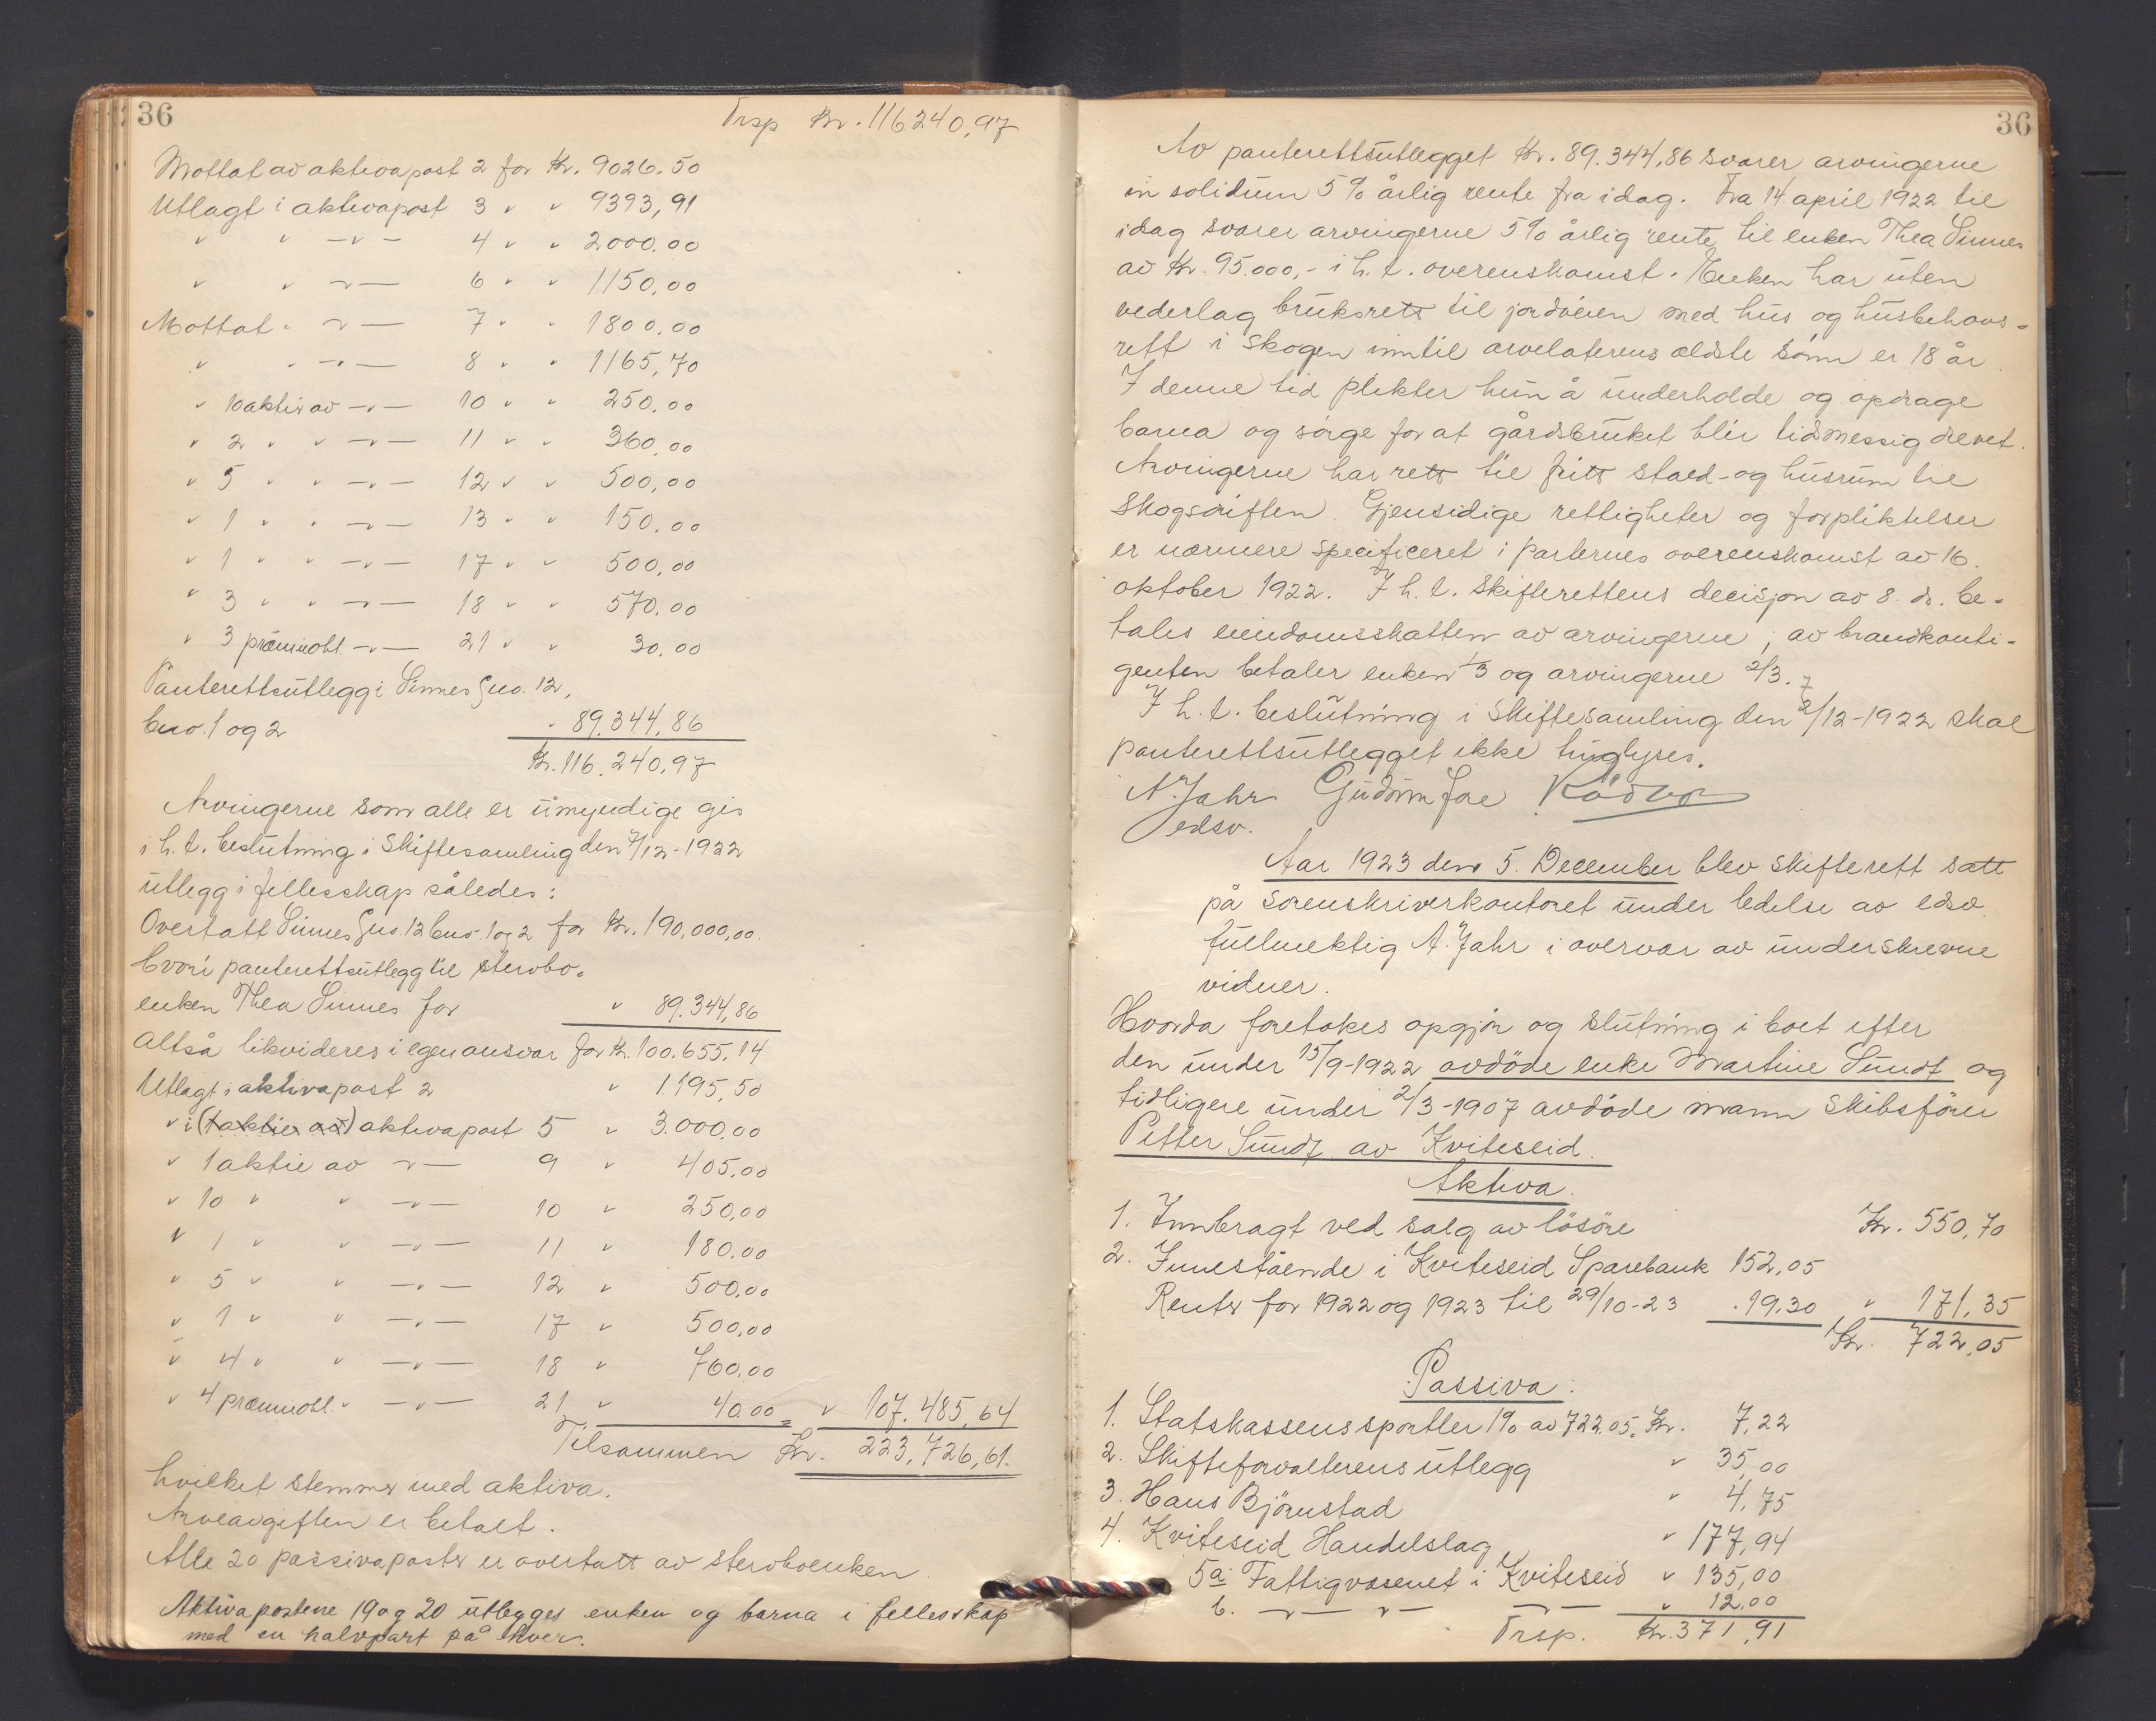 36
Trsp Kr. 116.240,97
Mottat av aktivapost 2 for Kr. 9026.50
Utlagt i aktivapost 3 " " 9393,91
" " -"- 4 " " 2000.00
" " -"- 6 " " 1150,00
Mottat " -"- 7 " " 1800.00
" " -"- 8 " " 1165,70
" 10 aktier av -"- 10 " " 250.00
" 2 " " -"- 11 " " 360,00
" 5 " " -"- 12 " " 500,00
" 1 " " -"- 13 " " 150.00
" 1 " " -"- 17 " " 500,00
" 3 " " -"- 18 " " 570.00
" 3 præmieobl. -"- 21 " " 30.00
Panterettsutlegg i Sinnes gno. 12,
bno. 1 og 2 " 89.344,86
Kr. 116.240,97
Arvingerne som alle er umyndige gis
i h.t. beslutning i skiftesamling den 7/12-1922
utlegg i fellesskap således:
Overtatt Sinnes gno. 12 bno. 1 og 2 for Kr. 190,000,00
hvori panterettsutlegg til stervbo-
enken Thea Sinnes for " 89.344,86
altså likvideres i egen ansvar for Kr. 100.655,14
Utlagt i aktivapost 2 " 1.195,50
" i (1 aktie av) aktivapost 5 " 3.000,00
" 1 aktie av -"- 9 " 405.00
" 10 " " -"- 10 " 250,00
" 1 " " -"- 11 " 180.00
" 5 " " -"- 12 " 500.00
" 1 " " -"- 17 " 500,00
" 4 " " -"- 18 " 760.00
" 4 præmieobl. " -"- 21 " 40.00 = " 107.485,64
Tilsammen Kr. 223,726,61.
hvilket stemmer med aktiva.
Arveavgiften er betalt.
Alle 20 passivaposter er overtatt av stervboenken.
Aktivapostene 19 og 20 utlegges enken og barna i fellesskap
med en halvpart på hver.
36
Av panterettsutlegget Kr. 89.344,86 svarer arvingerne
in solidum 5% årlig rente fra idag. Fra 14 april 1922 til
idag svarer arvingerne 5% årlig rente til enken Thea Sinnes
av Kr. 95.000,- i h.t. overenskomst. Enken har uten
vederlag bruksrett til jordveien med hus og husbehovs-
rett i skogen inntil arvelaterens ældste sønn er 18 år
I denne tid plikter hun å underholde og opdrage
barna og sørge for at gårdsbruket blir tidsmessig drevet.
Arvingerne har rett til fritt stald- og husrum til
skogsdriften. Gjensidige rettigheter og forpliktelser
er nærmere specificeret i parternes overenskomst av 16.
oktober 1922. I h.t. skifterettens decisjon av 8. ds. be-
tales eiendomsskatten av arvingerne, av brandkonti-
genten betaler enken 1/3 og arvingerne 2/3.
I h.t. beslutning i skiftesamling den 7/12-1922 skal
panterettsutlegget ikke tinglyses.
A. Jahr Gudrun Foe
edsv.
Aar 1923 den 5. December blev skifterett satt
på sorenskriverkontoret under ledelse av edsv.
fullmektig A. Jahr i overvær av underskrevne
vidner.
Hvorda foretokes opgjør og slutning i boet efter
den under 15/9-1922 avdøde enke Martine Sundt og
tidligere under 2/3-1907 avdøde mann skibsfører
Petter Sundt av Kviteseid.
Aktiva.
1. Innbragt ved salg av løsøre Kr. 550,70
2. Innestående i Kviteseid Sparebank 152,05
Renter for 1922 og 1923 til 29/10-23 " 19.30 " 171,35
Kr. 722,05
Passiva.
1. Statskassens sportler 1% av 722.05. Kr. 7,22
2. Skifteforvalterens utlegg " 35,00
3. Hans Bjørnstad " 4,75
4. Kviteseid Handelslag " 177,94
5 a. Fattigvæsenet i Kviteseid " 135,00
b. -"- -"- -"- " 12.00
Trsp. Kr. 371,91